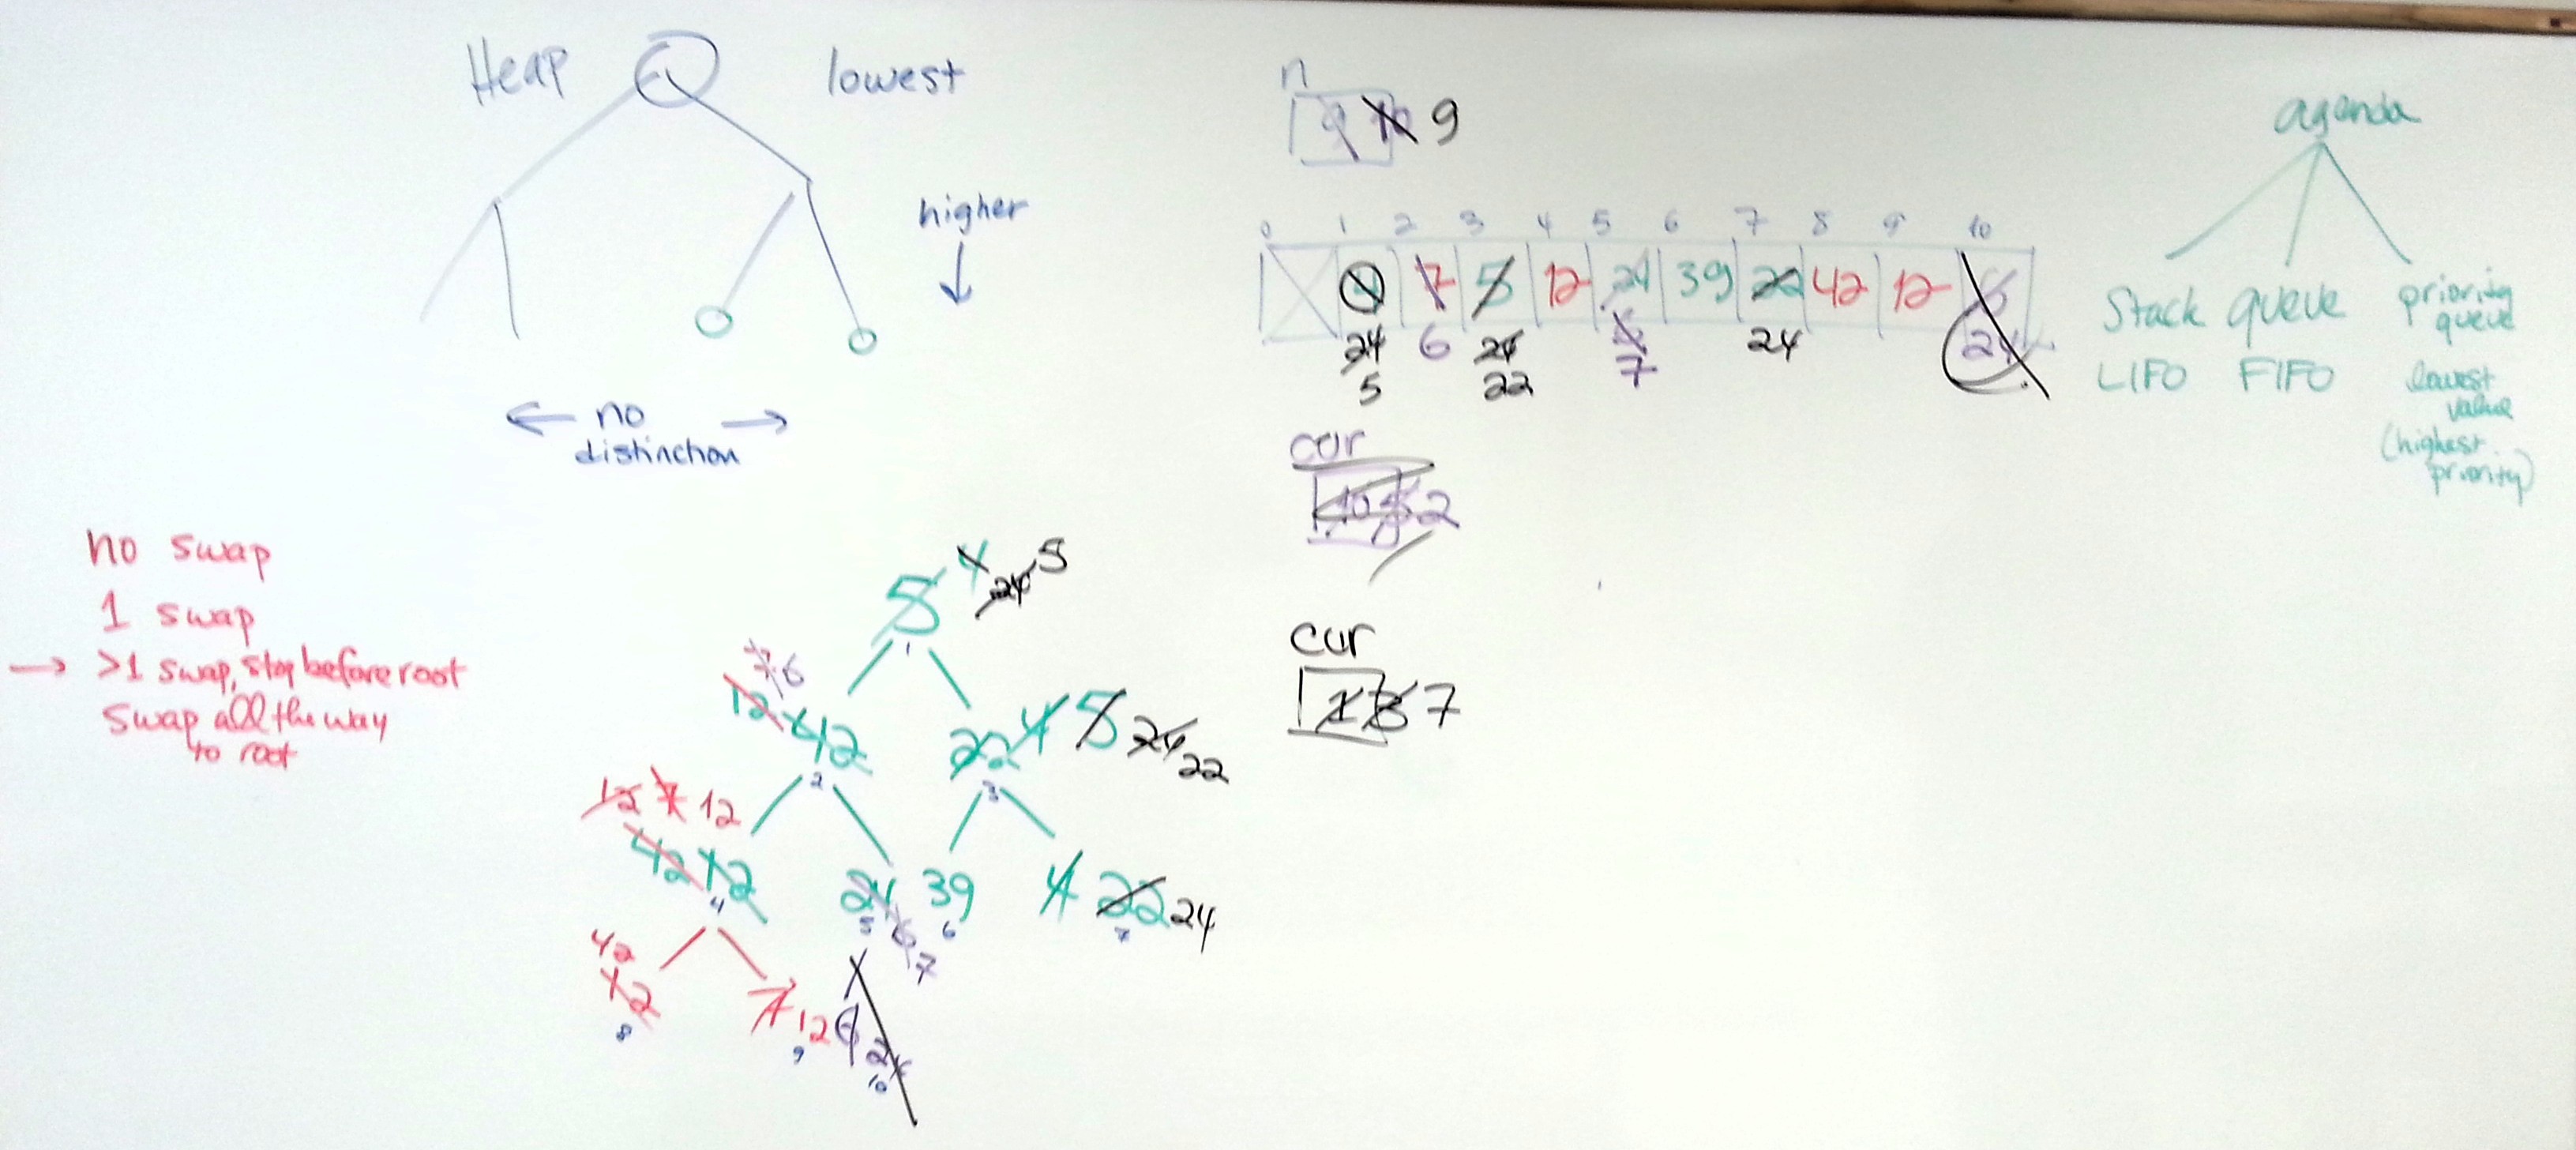 Heap
lowest
higher
no
distinction
n
9 10 9
0 1 2 3 4 5 6 7 8 9 10
7 5 12 24 39 22 42 12 6
24 6 24 6 24 24
5 22 7
cur
10 5 2
cur
1 3 7
agenda
Stack queue priority
queue
LIFO FIFO lowest
value
(highest
priority)
no swap
1 swap
→ >1 swap, stop before root
swap all the way
to root
5 4 24 5
1
7 6
12 42
2
22 4 5 24 22
3
12 7 12
42 12
4
24 6 7
5
39
6
4 22 24
7
42
12
8
7 12
9
6 24
10